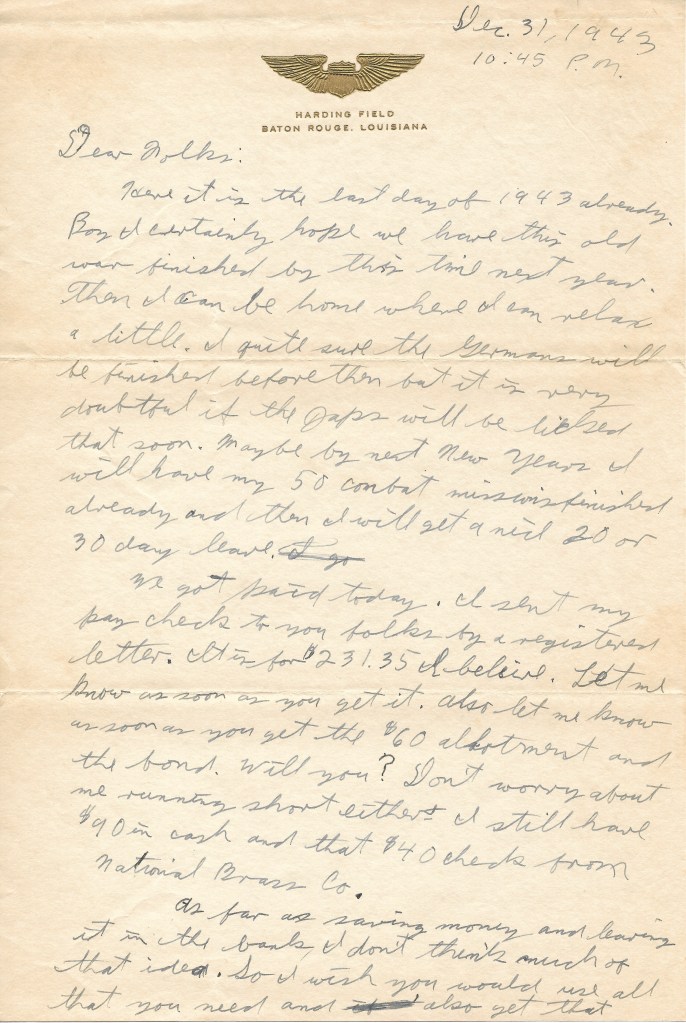 Dec. 31, 1943
10:45 P.M.
HARDING FIELD
BATON ROUGE, LOUISIANA
Dear Folks:
Here it is the last day of 1943 already.
Boy I certainly hope we have this old
war finished by this time next year.
Then I can be home where I can relax
a little. I quite sure the Germans will
be finished before then but it is very
doubtful if the Japs will be licked
that soon. Maybe by next New Years I
will have my 50 combat missions finished
already and then I will get a nice 20 or
30 day leave. I go
We got paid today. I sent my
pay check to you folks by a registered
letter. It is for $231.35 I beleive. Let me
know as soon as you get it. Also let me know
as soon as you get the $60 allotment and
the bond. Will you? Dont worry about
me running short either. I still have
$90 in cash and that $40 check from
National Brass Co.
As far as saving money and leaving
it in the bank, I don't think much of
that idea. So I wish you would use all
that you need and also get that